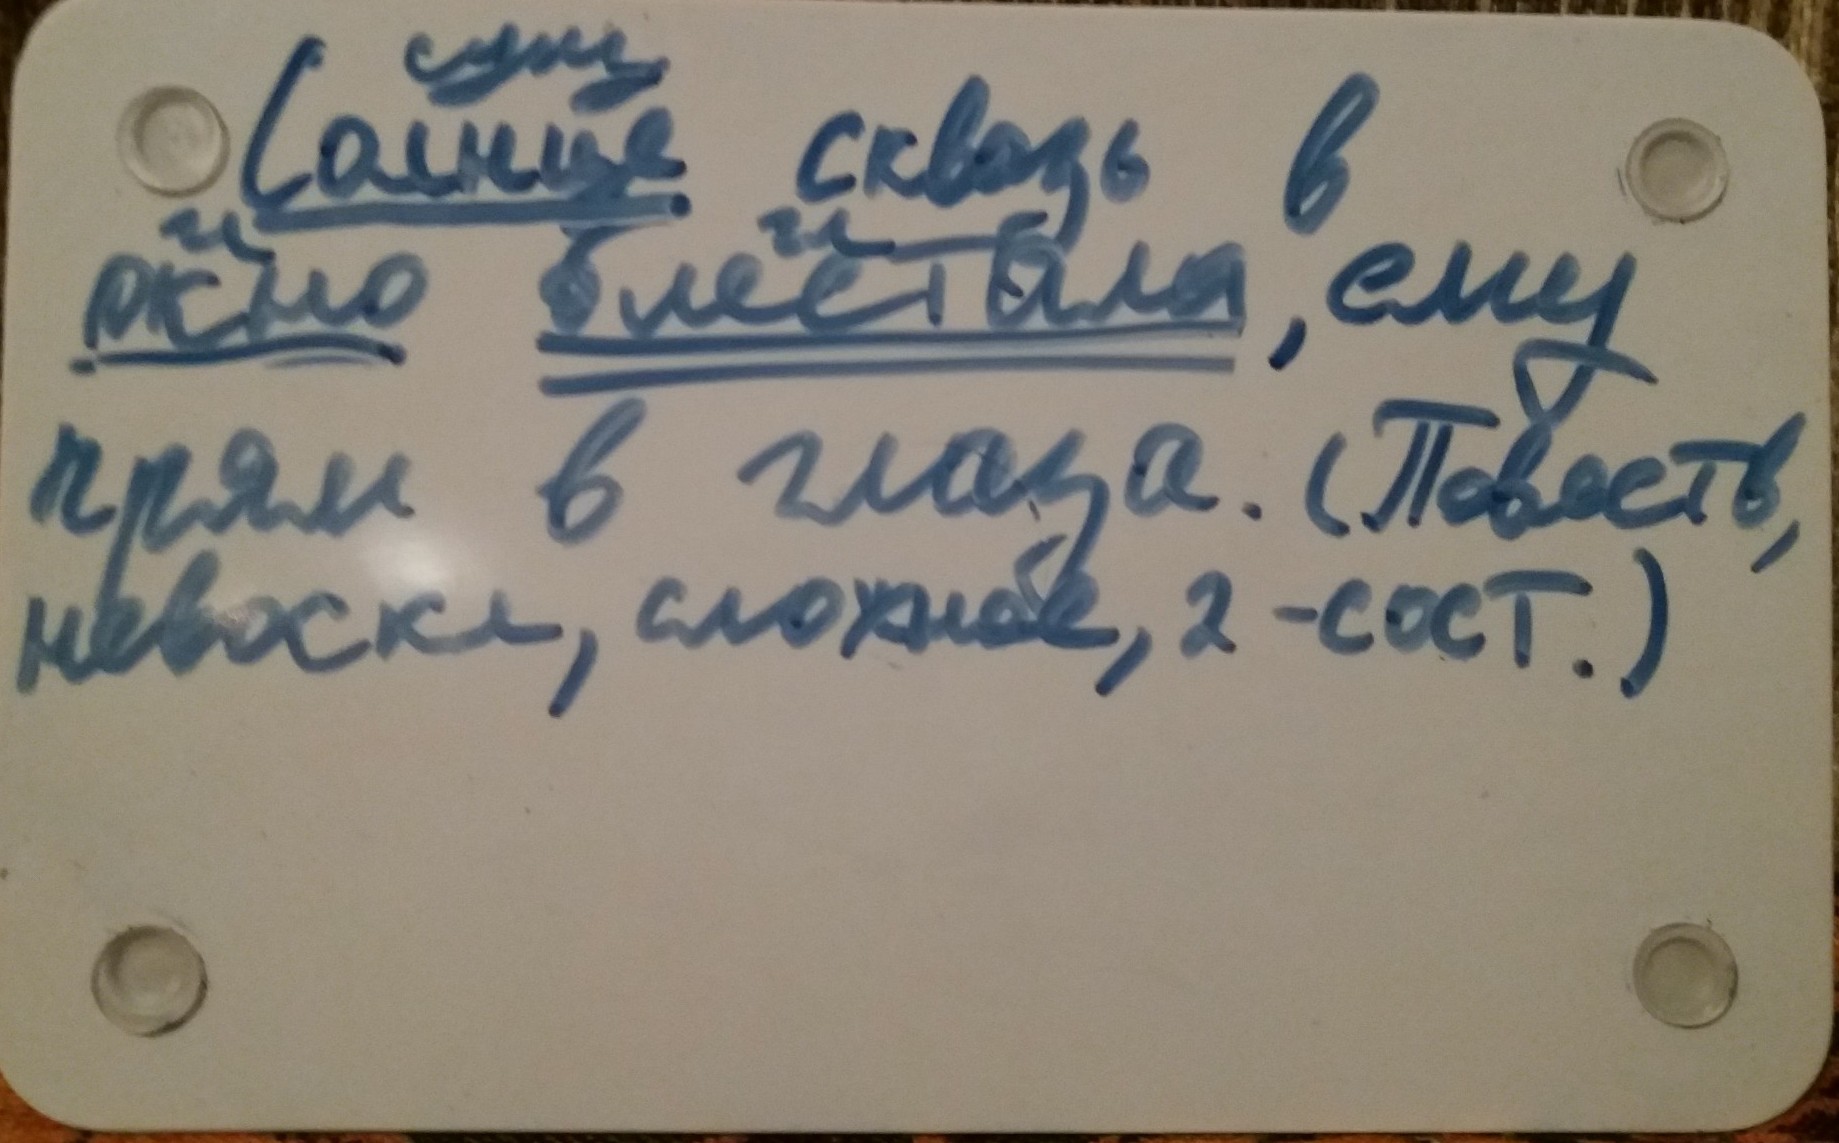 сущ
Солнце сквозь в
гл гл
окно блестала, ему
прям в глаза. (Повеств,
невоскл, сложное, 2-сост.)